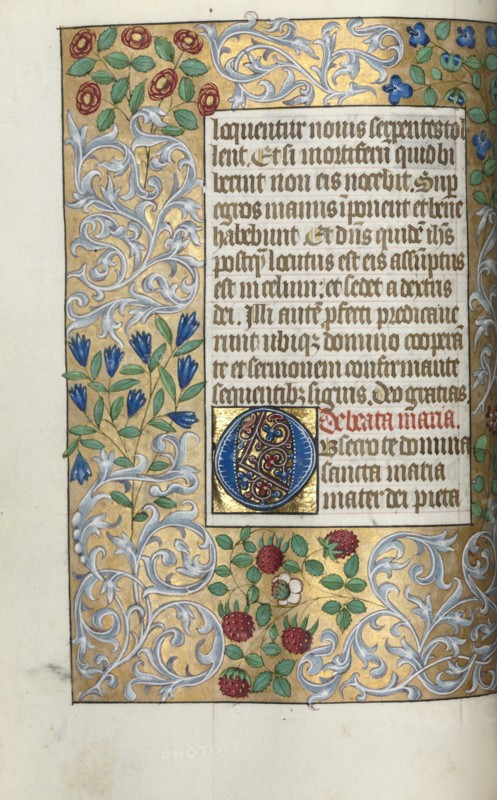 loquentur novis serpentes tol
lent. Et si mortiferū quid bi
berint non eis nocebit. Sup
egros manus īponent et bene
habebunt. Et dn̄s quidē ihs̄
postqȝ locutus est eis assūptus
est in celum: et sedet a dextris
dei. Illi autē ꝓfecti predicave
runt ubiqȝ domino cooperā
te et sermonem confirmante
sequentibȝ signis. deo gratias.
De beata maria.
Obsecro te domina
sancta maria
mater dei pieta
PHOTO12